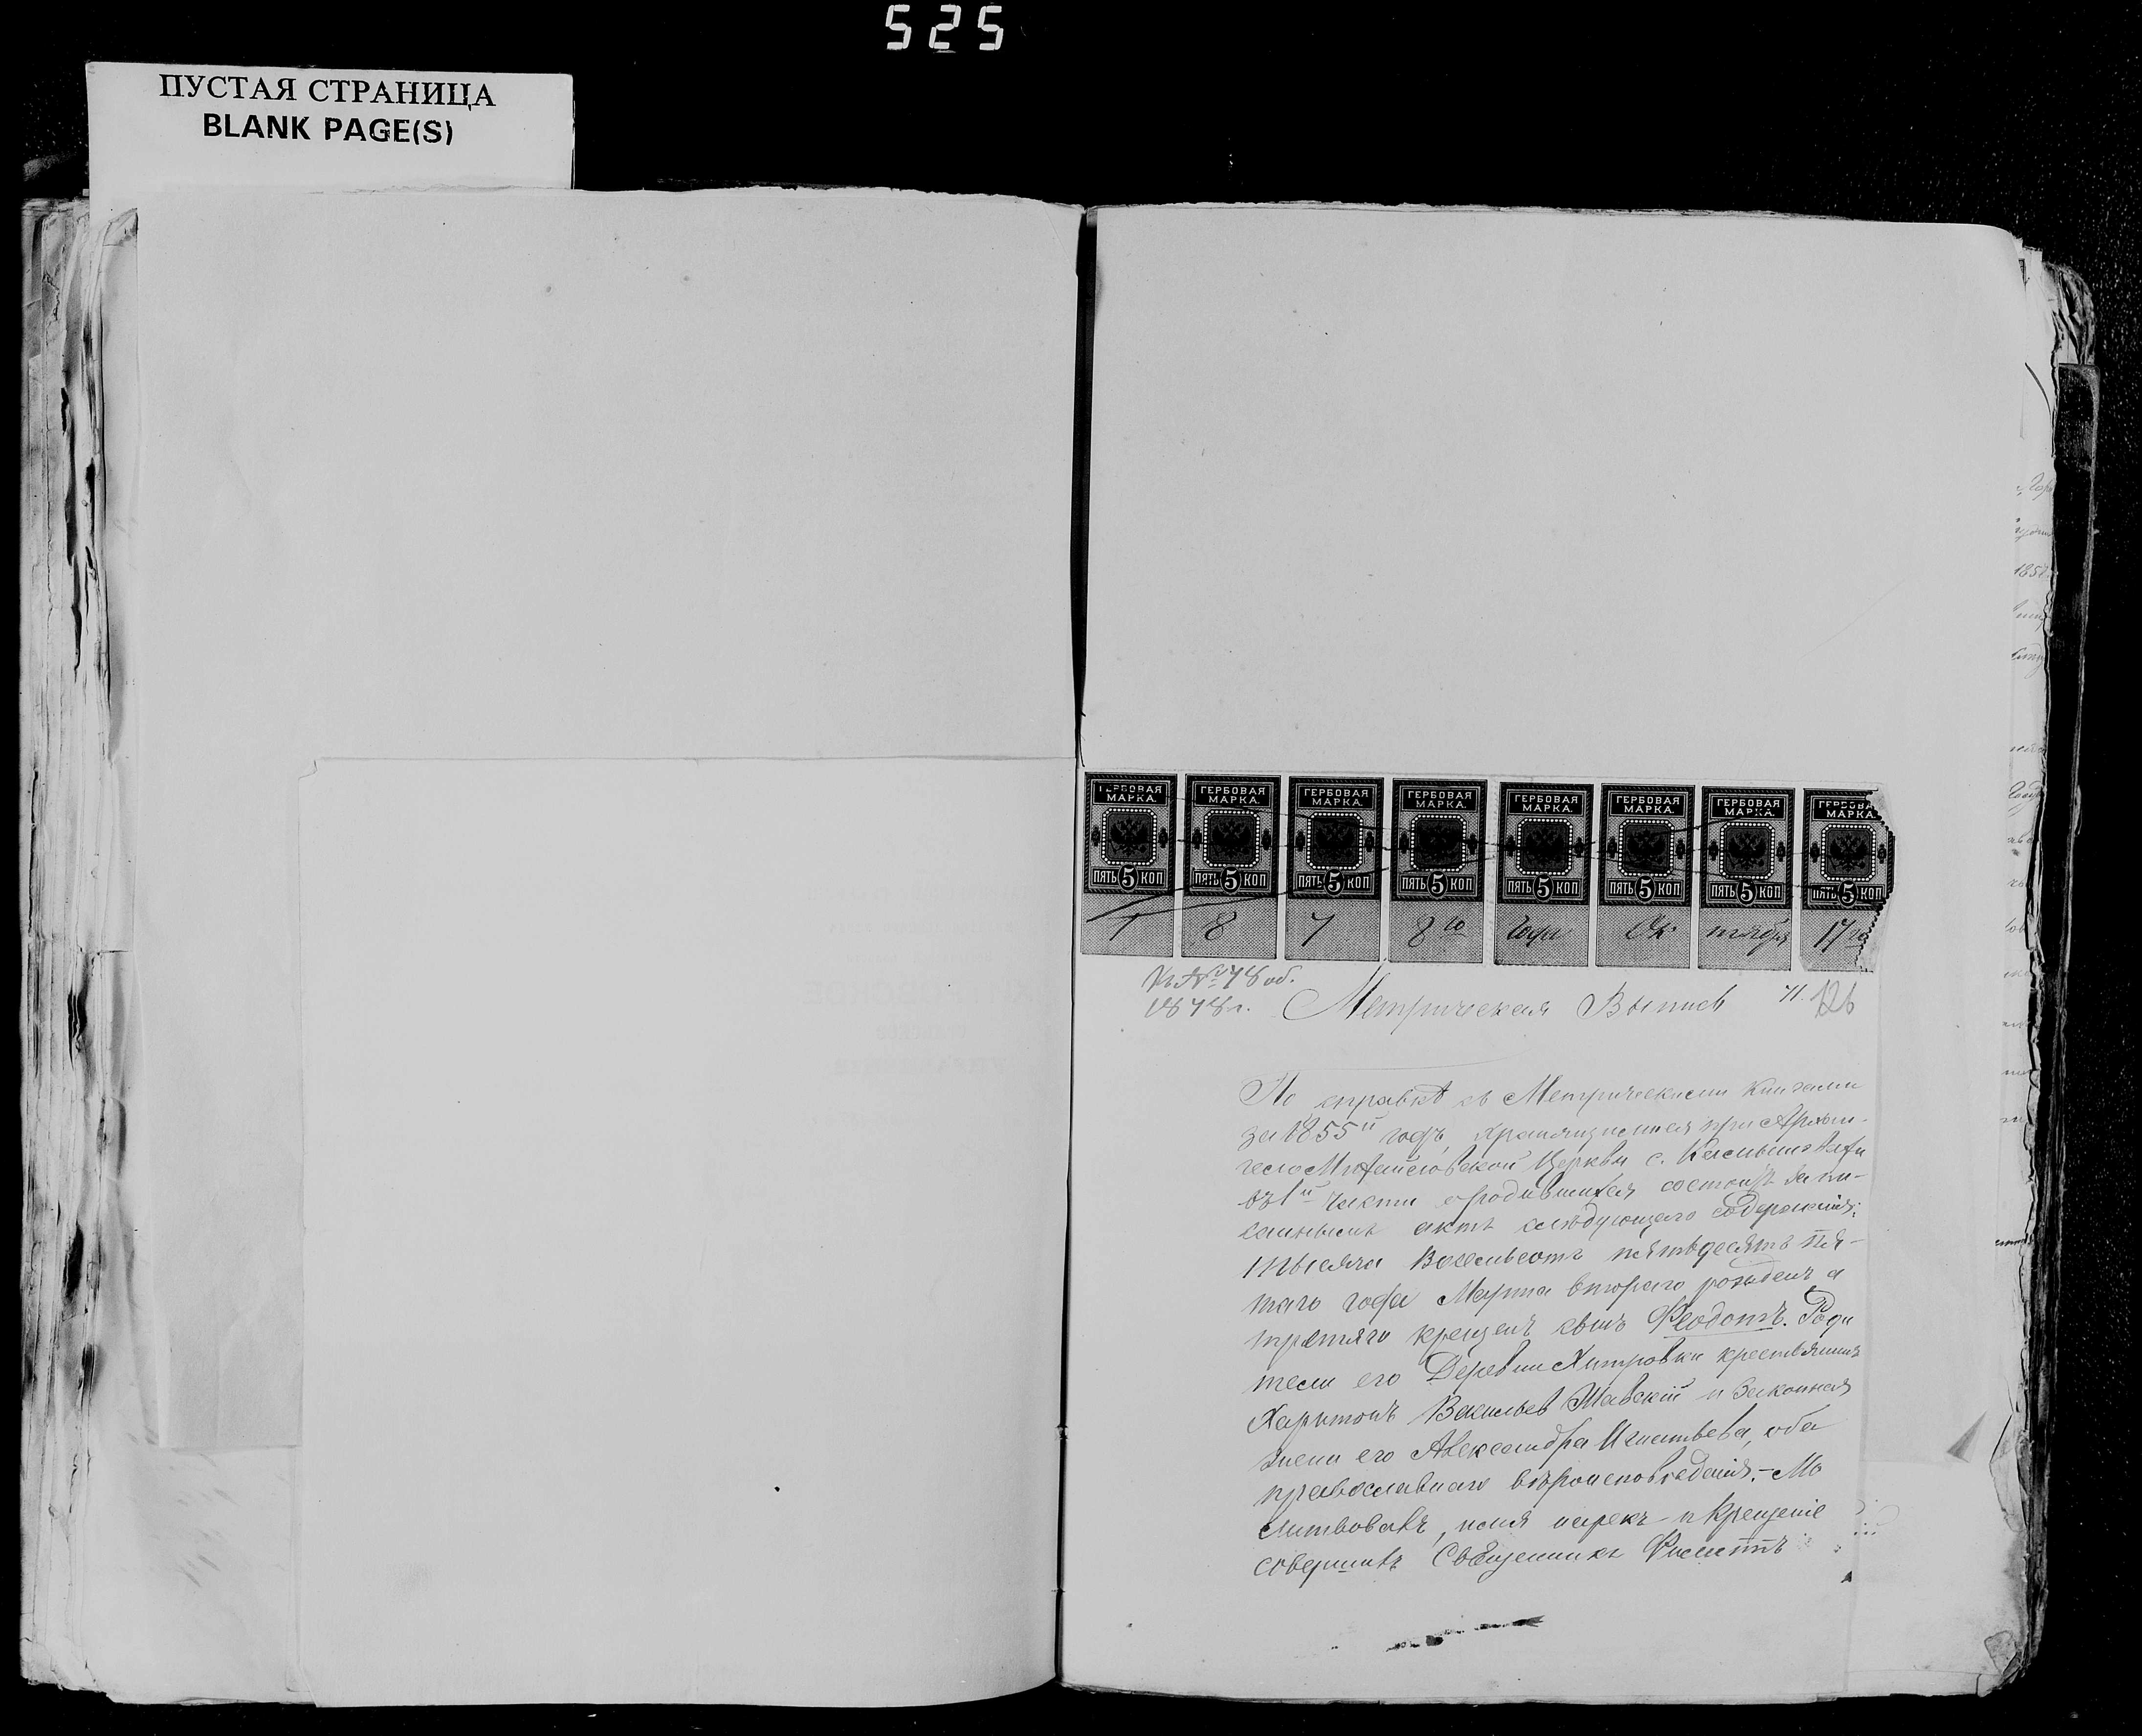 525
ПУСТАЯ СТРАНИЦА
BLANK PAGE(S)
ГЕРБОВАЯ МАРКА. ГЕРБОВАЯ МАРКА. ГЕРБОВАЯ МАРКА. ГЕРБОВАЯ МАРКА. ГЕРБОВАЯ МАРКА. ГЕРБОВАЯ МАРКА. ГЕРБОВАЯ МАРКА. ГЕРБОВАЯ МАРКА.
ПЯТЬ 5 КОП ПЯТЬ 5 КОП ПЯТЬ 5 КОП ПЯТЬ 5 КОП ПЯТЬ 5 КОП ПЯТЬ 5 КОП ПЯТЬ 5 КОП ПЯТЬ 5 КОП
1 8 7 8 го года Ок тября 17 го
Къ № 78 об.
1878 г. Метрическая Выпись 71. 126
По справкѣ съ Метрическими книгами
за 1855й годъ, хранящимися при Архан-
гело Михайловской Церкви с.
въ 1й части о родившихся состоитъ запи-
саннымъ актъ слѣдующаго содержанія:
тысяча восемьсотъ пятьдесятъ пя-
таго года Марта втораго рожденъ а
третяго крещенъ сынъ Феодотъ. Роди
тели его Деревни Хитровки крестьянинъ
Харитонъ Васильев Шавскій и законная
жена его Александра Игнатьева, оба
православнаго вѣроисповѣданія. – Мо
литвовалъ, имя нарекъ и крещеніе
совершилъ Священникъ Филиппъ